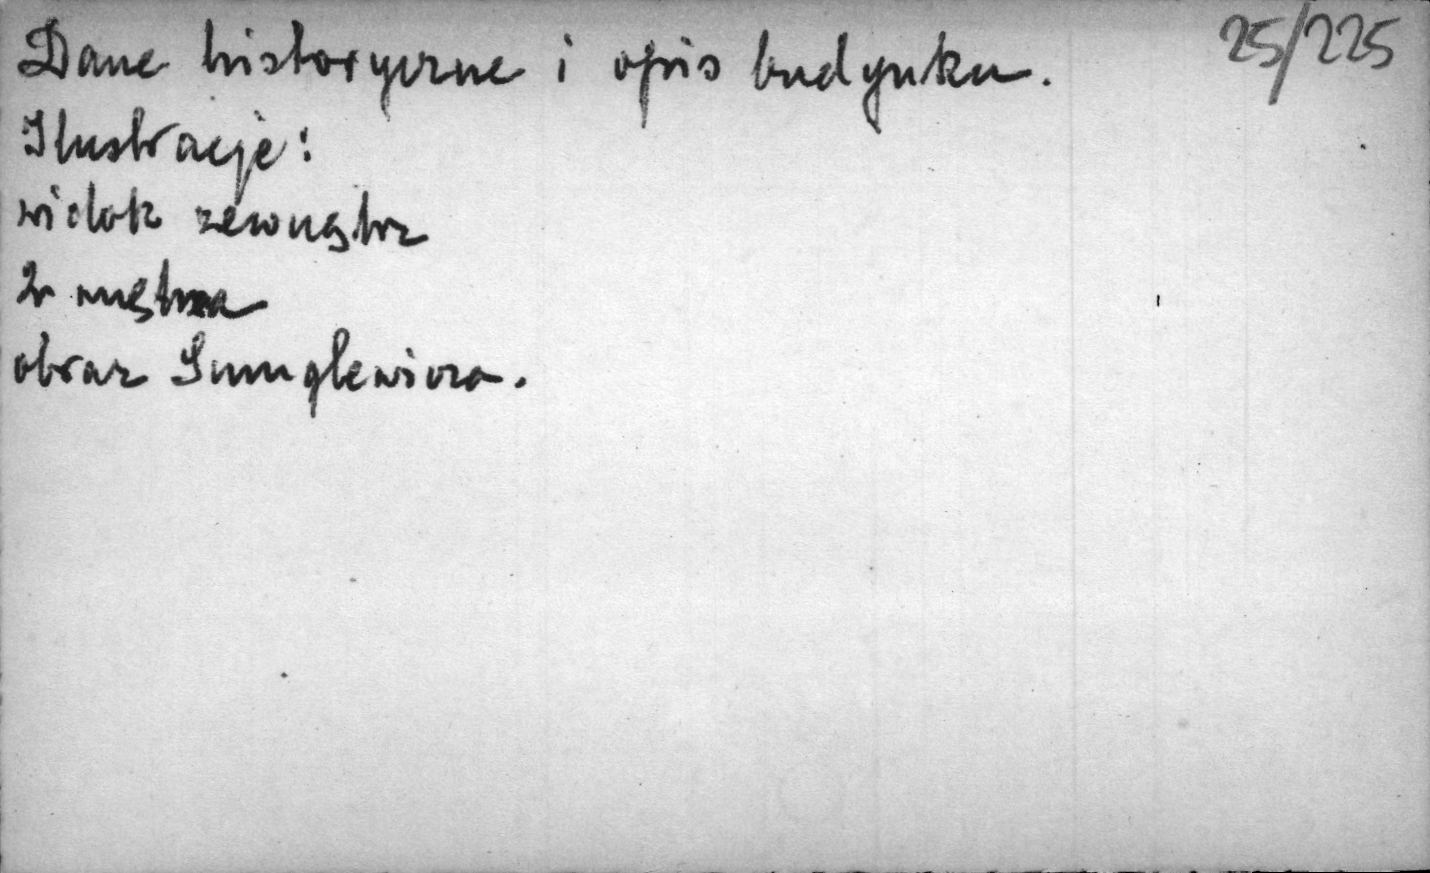 Dane historyczne i opis budynku. 25/225
Ilustracje:
widok zewnątrz
2 wnętrza
obraz Smuglewicza.